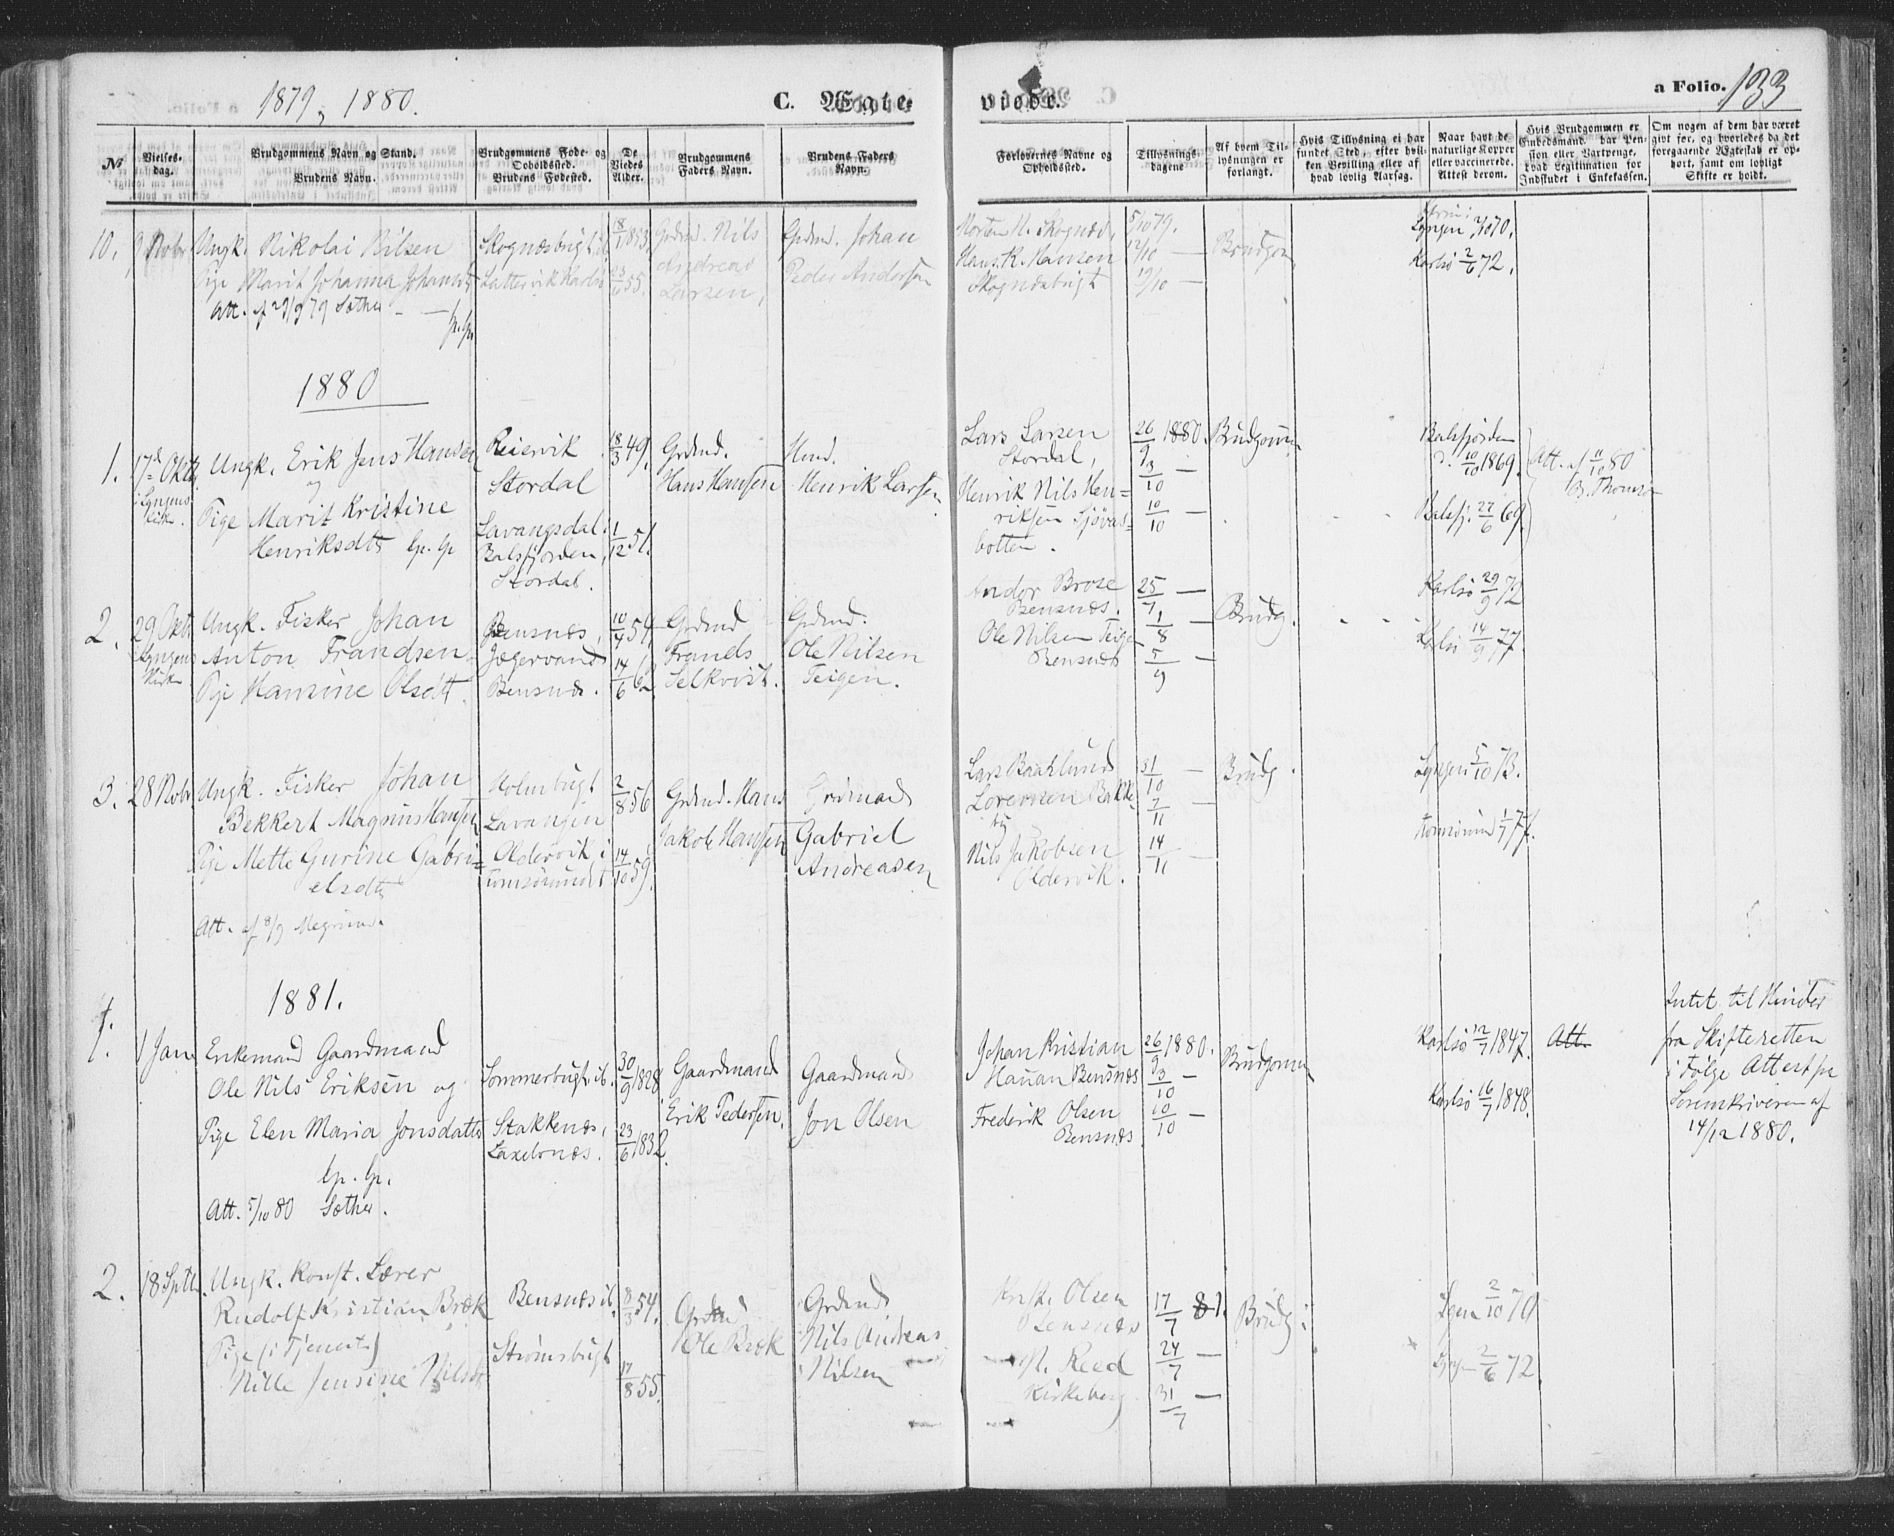 1879, 1880.
C. Ægte
viede.
a Folio. 133
№
Vielses-
dag.
Brudgommens Navn og Stand.
Brudens Navn.
Brudgommens Føde- og
Opholdssted.
Brudens Fødested.
De
Viedes
Alder.
Brudgommens
Faders Navn.
Brudens Faders
Navn.
Forlovernes Navne og
Opholdssted.
Tillysnings-
dagene
Af hvem Til-
lysningen er
forlangt.
Hvis Tillysning ei har
fundet Sted, efter hvil-
ken Bevilling eller af
hvad lovlig Aarsag.
Naar havt de
naturlige Kopper
eller vaccinerede.
Attest derom.
Hvis Brudgommen er
Embedsmand, har Pen-
sion eller Vartpenge,
hvad Legitimation for
Indskudet i Enkekassen.
Om nogen af dem har været
gift før, og hvorledes da det
foregaaende Ægteskab er op-
hørt, samt om lovligt
Skifte er holdt.
10. 9 Novbr
Ungk. Nikolai Nilsen
Pige Marit Johanna Johansdt
Att. af 29/9 79 Sæther
Skognæsbugt
Lattervik Karlsø
8/1 1853
23/6 55.
Grdmd. Nils
Andreas
Larsen,
Grdmd. Johan
Peder Andersen
Morten H. Skognæs,
Hans K. Hansen
Skognæsbugt
5/10 79.
12/10 —
19/10 —
Brudgom
Lyngen 2/10 70.
Karlsø 2/6 72.
1880
1. 17d Oktb.
i Lyngens
Kirke.
Ungk. Erik Jens Hansen
og
Pige Marit Kristine
Henriksdtr lp. lp
Reiervik
Stordal
Lavangsdal i
Balsfjorden,
Stordal.
18/3 49.
1/12 51.
Grdmd.
Hans Hansen
Hmd.
Henrik Larsen
Lars Larsen
Stordal,
Henrik Nils Hen-
riksen Sjøvas-
botten.
26/9 1880.
3/10 —
10/10 —
Brudgom
Balsfjorden
d. 10/10 1869.
Balsfj. 27/6 69.
Att. af 11/10 80
B. Thomsø
2. 29 Oktb
Lyngens
Kirke
Ungk. Fisker Johan
Anton Frandsen
Pige Hansine Olsdt.
Bensnæs,
Jægervand
Bensnæs.
10/4 54,
14/6 62.
Grdmd
Frands
Selkvist.
Grdmd.
Ole Nilsen
Teigen.
Andor Brose
Bensnæs.
Ole Nilsen Teigen
Bensnæs
25/7 —
1/8 —
5/9 —
Brudg.
Karlsø 29/9 72
Karlsø 14/9 77
3. 28 Novbr
Ungk. Fisker Johan
Bekkert Magnus Hansen
Pige Mette Gurine Gabri-
elsdtr
Att. af 8/9 Magnus.
Holmbugt
Lavangen
Oldervik i
Tromsøsundet
2/8 56
14/10 59.
Grdmd. Hans
Jakob Hansen
Grdmand
Gabriel
Andreasen
Lars Baaklund
Lorentsen Bakke-
by
Nils Jakobsen
Oldervik.
31/10 —
7/11 —
14/11 —
Brudg.
Lyngen 5/10 73.
Tromsøsund 1/7 77.
1881.
1. 1 Jan
Enkemand Gaardmand
Ole Nils Eriksen og
Pige Elen Maria Jonsdatter
lp. lp.
Att. 5/10 80 Sæther.
Sommerbugt ib.
Stakkenæs,
Laxebonæs.
30/9 1828
23/6 1832.
Gaardmand
Erik Pedersen.
Gaardmand
Jon Olsen
Johan Kristian
Hauan Bensnæs
Frederik Olsen
Bensnæs
26/9 1880.
3/10 —
10/10 —
Brudgommen
Karlsø 12/7 1847.
Karlsø 16/7 1848.
Att.
Intet til Hinder
fra Skifteretten
i Følge Attest fra
Sorenskriveren af
14/12 1880.
2. 18 Septbr.
Ungk. Konst. Lærer
Rudolf Kristian Bræk
Pige (i Tjeneste)
Nille Jensine Nilsdt
Bensnæs ib.
Strømsbugt
8/3 54.
17/8 55.
Grdmd
Ole Bræk
Grdmd
Nils Andreas
Nilsen
Krist. Olsen
Bensnæs
Reed
Kirkeberg
17/7 81.
24/7 —
31/7 —
Brudg:
Lgen 2/10 70
Lyngen 2/6 72